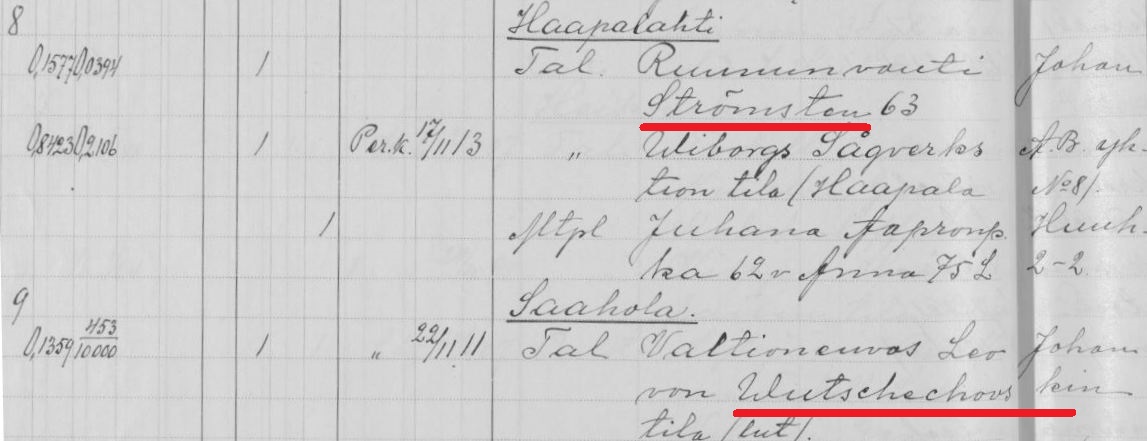 8 Haapalahti
0,1577 0,0394 1 Tal. Ruununvouti Johan
Strömsten 63
0,8423 0,2106 1 Per.k. 17/11 13 „ Wiborgs Sågverks A.B. yh-
tion tila (Haapala No 8).
1 Mtpl Juhana Aapronp. Huuh-
ka 62 v Anna 75 L 2-2
9 Saahola.
0,1359 453/10000 1 „ 22/11 11 Tal Valtioneuvos Leo Johan
von Wutschechows kin
tila (lut).